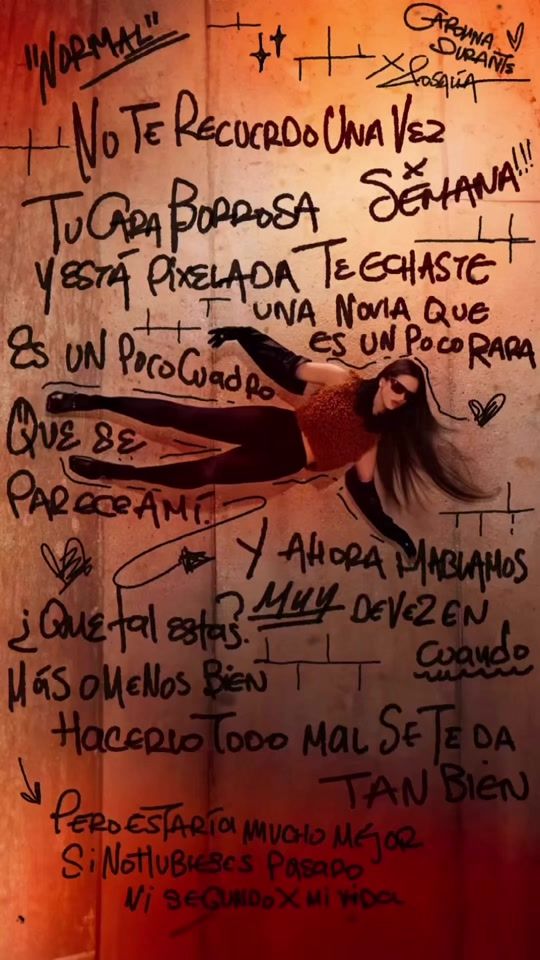 "NORMAL"
CAROLINA
DURANTE
X ROSALÍA
NO TE RECUERDO UNA VEZ
X SEMANA!!!
TU CARA BORROSA
Y ESTÁ PIXELADA TE ECHASTE
UNA NOVIA QUE
ES UN POCO RARA
ES UN POCO CUADRO
QUE SE
PARECE A MÍ.
Y AHORA HABLAMOS
MUY DE VEZ EN
CUANDO
¿QUE tal estás?
MÁS O MENOS BIEN
HACERLO TODO MAL SE TE DA
TAN BIEN
PERO ESTARÍA MUCHO MEJOR
Si NO HUBIESES PASADO
Ni SEGUNDO X MI VIDA